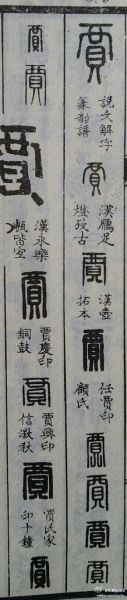 賈
說文解字
篆韵譜
賈
漢鴈足
燈攷古
賈
漢壺
拓本
賈
任賈印
顧氏
賈
賈
賈
賈
賈
賈
賈
漢永樂
甎皆室
賈
賈慶印
銅鼓
賈
賈興印
信澂秋
賈
賈氏家
印十鐘
賈